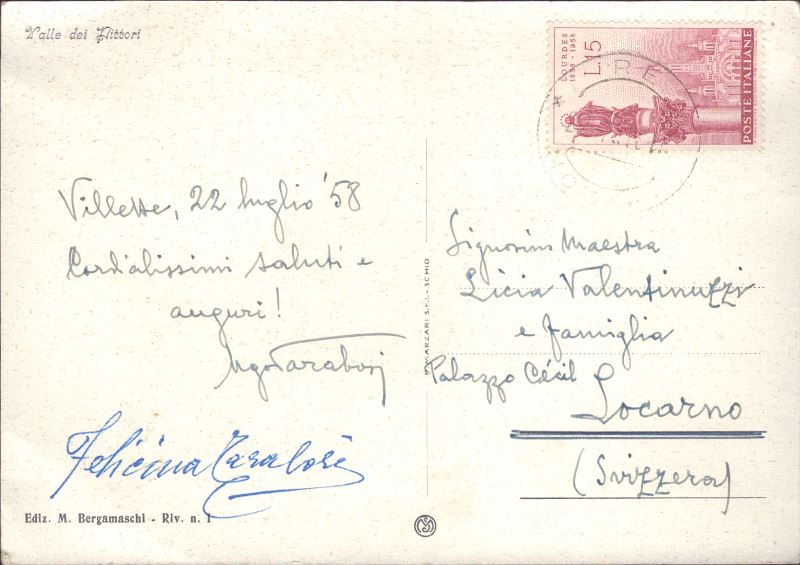 Valle dei Pittori
LOURDES
1858 - 1958
L. 15
POSTE ITALIANE
RE
Villette, 22 luglio '58
Cordialissimi saluti e
auguri!
Ugo Tarabori
Felicina Tarabori
Signorina Maestra
Licia Valentinuzzi
e famiglia
Palazzo Cécil
Locarno
(Svizzera)
MARZARI S.p.A. - SCHIO
Ediz. M. Bergamaschi - Riv. n. 1